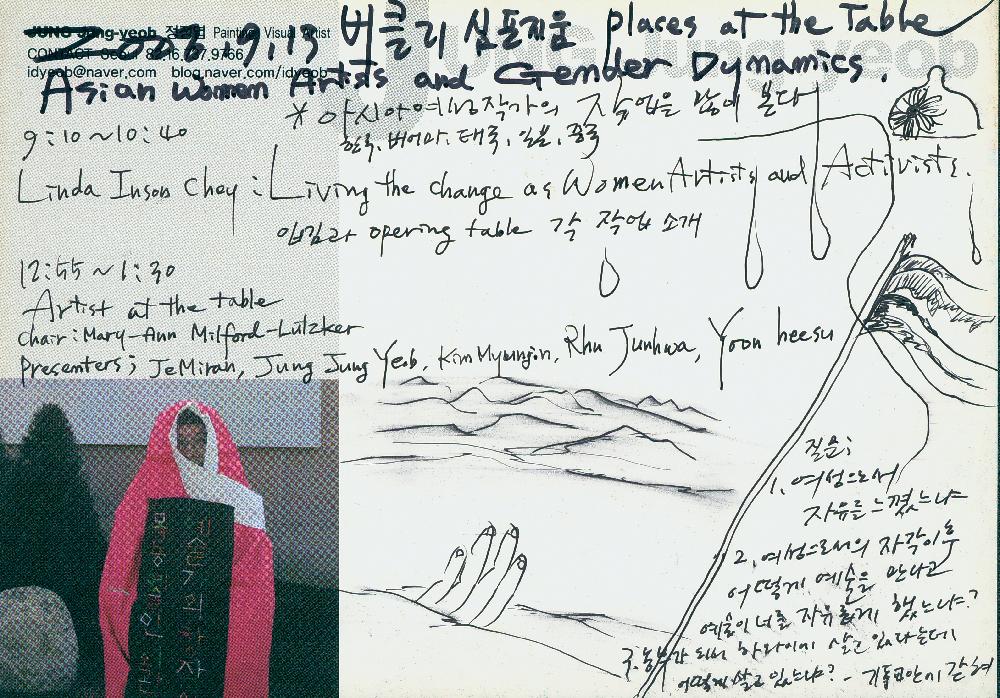 JUNG Jung-yeob 정정엽 Painter, Visual Artist
2008. 9. 13 버클리 심포지움 places at the Table
idyeob@naver.com blog.naver.com/idyeob
Asian women Artists and Gender Dynamics.
* 아시아여성작가의 작업을 많이 본다
한국, 버어마, 태국, 일본, 중국
9:10~10:40
Linda Inson Choy : Living the change as Women Artists and Activists.
입김과 opering table 각 작업 소개
12:55~1:30
Artist at the table
chair: Mary-Ann Milford-Lutzker
Presenters; JeMiran, Jung Jung Yeob, Kim Myungjin, Rhu Junhwa, Yoon heesu
질문;
1. 여성으로서
자유를 느꼈느냐
2. 여성으로서의 자각이후
어떻게 예술을 만나고
예술이 너를 자유롭게 했느냐?
3. 농부가 되어 하와이에 살고 있다는데
어떻게 살고 있느냐?